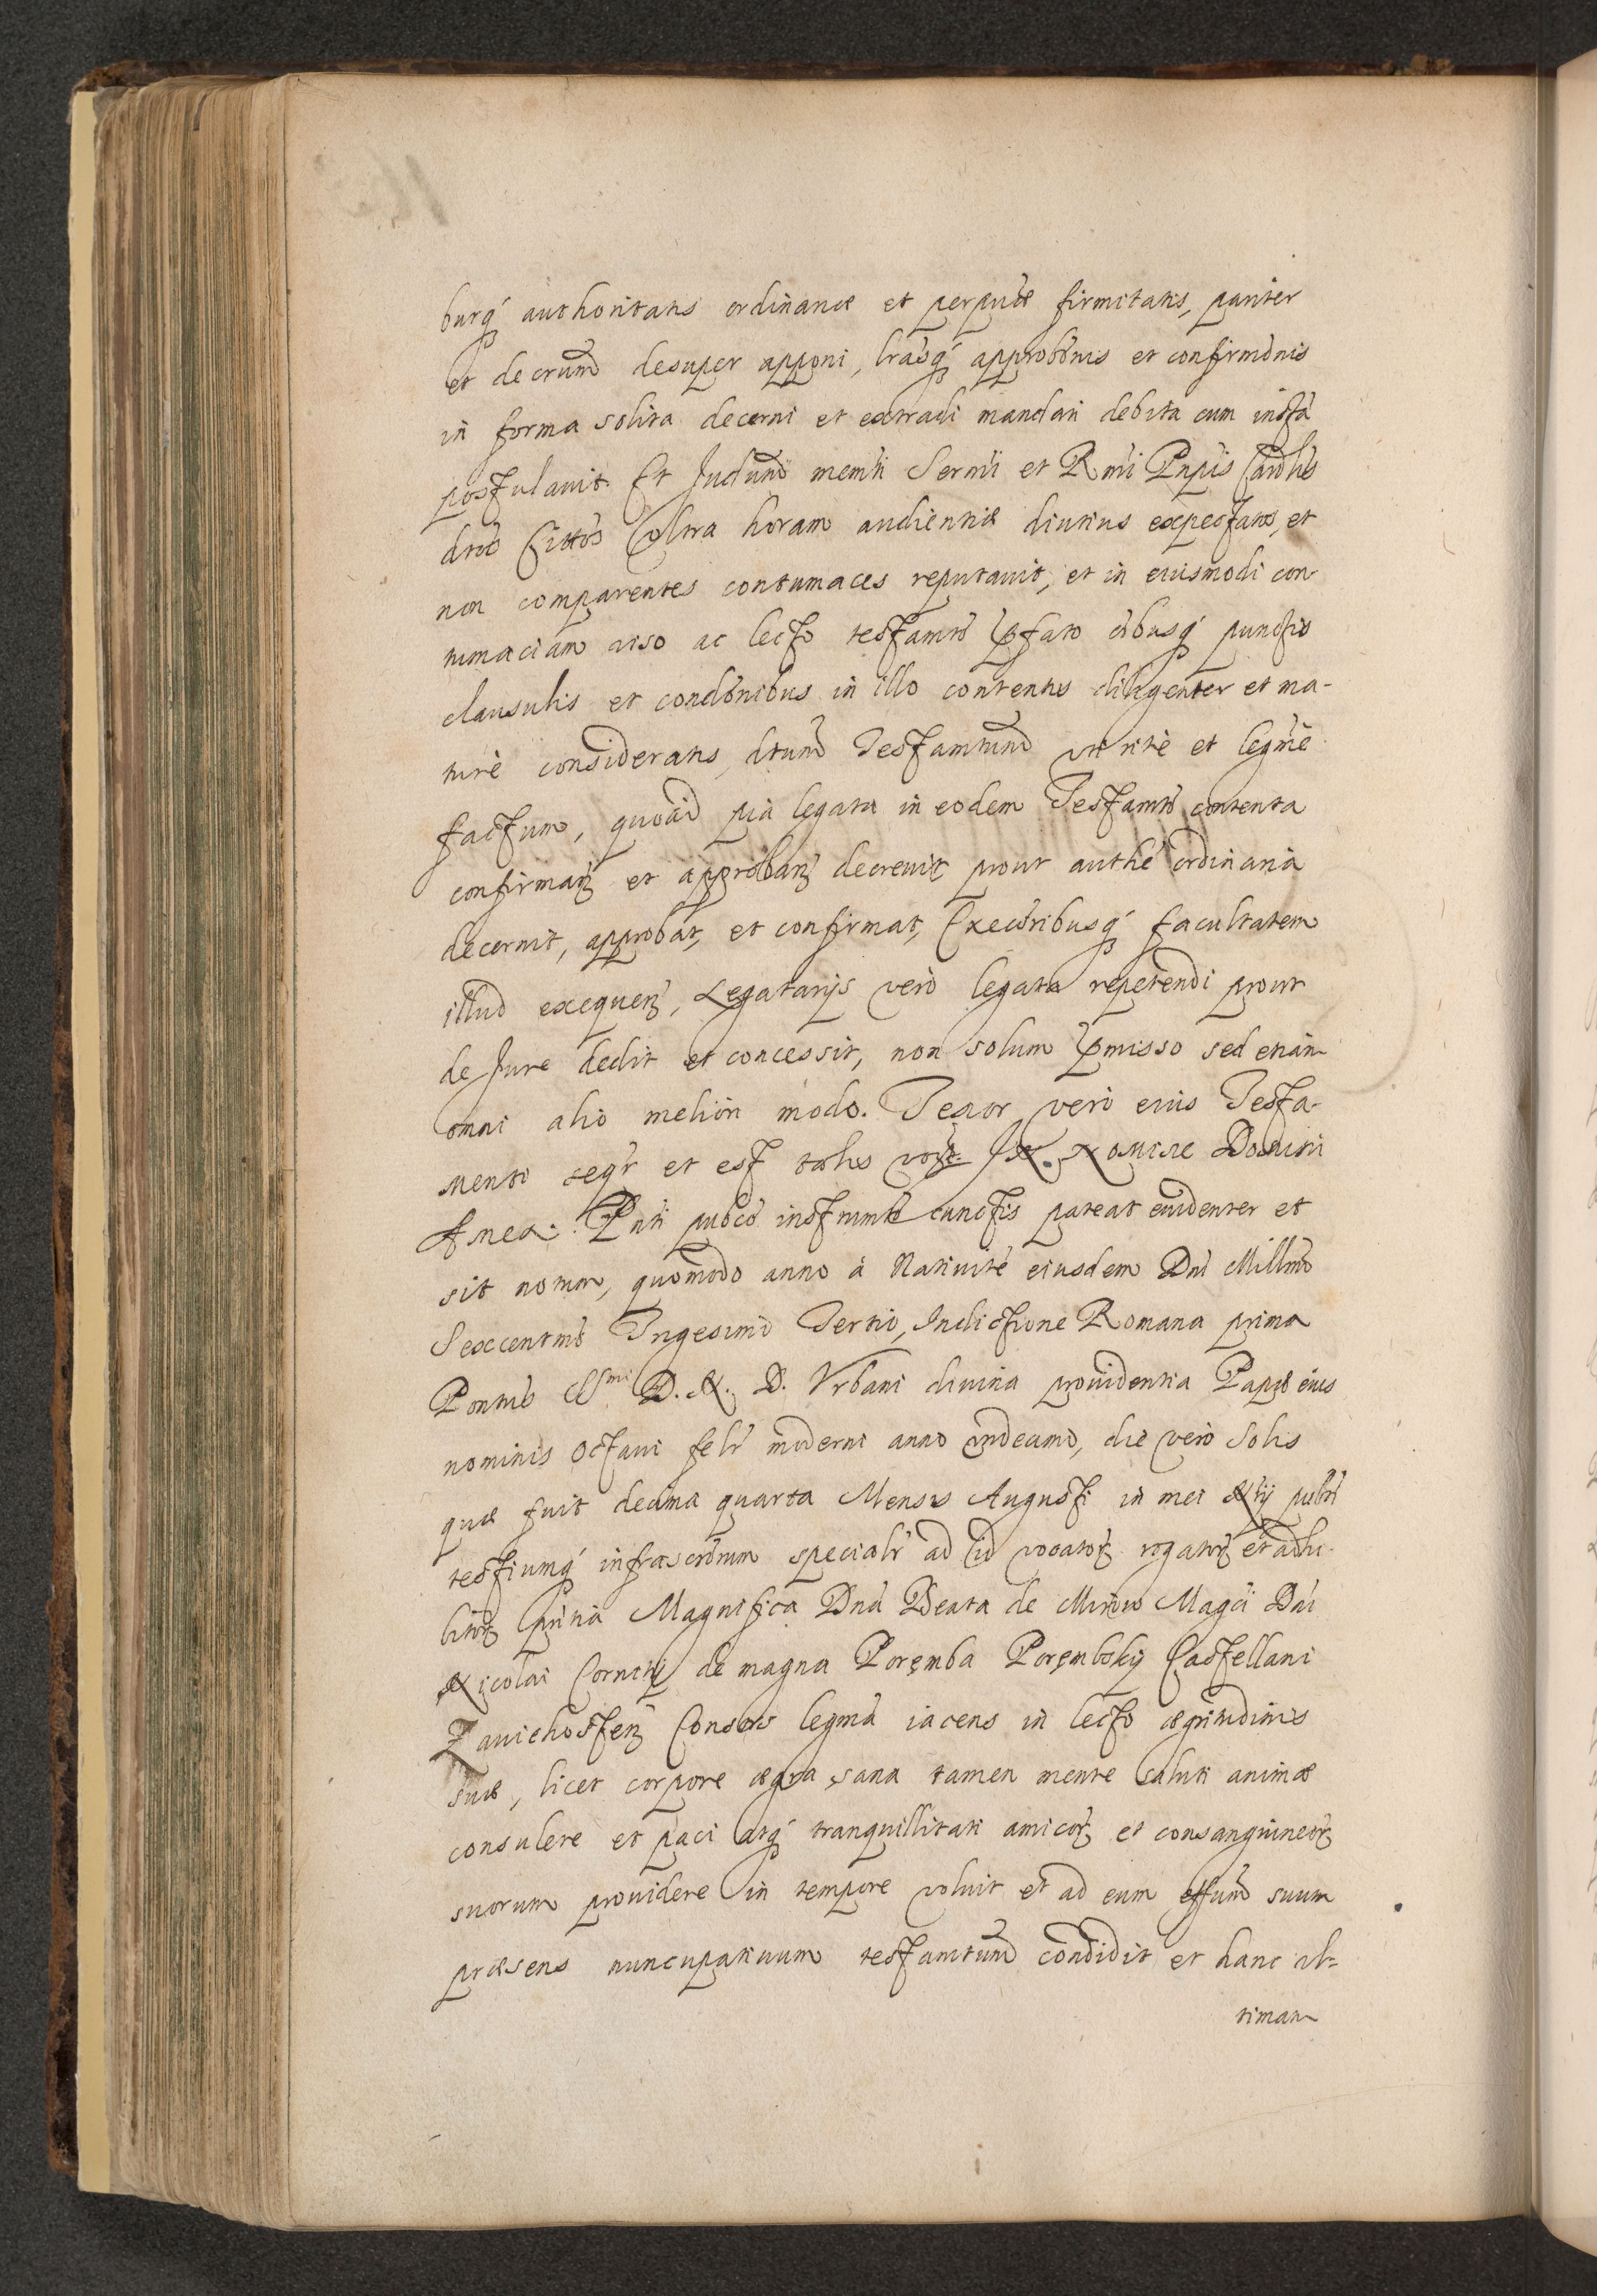 burq́ authoritatis ordinariæ et perpuæ firmitatis, pariter
et decrum̃ desuper apponi, lrasq́ approbõnis et confirmõnis
in forma solita decerni et extradi mandari debita cum insta
postulauit. Et Judum̃ memti Sermi et Rmi Pnpis Cardlis
dtos Cittos Vltra horam audientiæ diutius expectatos, et
non comparentes contumaces reputauit, et in eiusmodi con-
tumaciam viso ac lecto testamto pfato oibusq́ punctis
clausulis et condõnibus in illo contentis diligenter et ma-
turè consideratis, dtum Testamtum vti ritè et legmè
factum, quoad pia legata in eodem Testamto contenta
confirmanꝫ et approbanꝫ decreuit prout authe ordinaria
decernit, approbat, et confirmat, Executoribusq́ facultatem
illud exequenꝫ, Legatarijs verò legata repetendi prout
de Jure dedit et concessit, non solum pmisso sed etiam
omni alio meliori modo. Tenor verò eius Testa-
menti seqr et est talis In Nomine Domini
Amen. Pnti pubco instrumto cunctis pateat euidenter et
sit notum, quomodo anno à Natiuite eiusdem Dni Millmo
Sexcentmo Trigesimo Tertio, Indictione Romana prima
Pontus SSmi D. N. D. Vrbani diuina prouidentia Papæ eius
nominis Octaui felr moderni anno vndecimo, die verò Solis
quæ fuit decima quarta Mensis Augusti in mei Nrij publi
testiumq́ infrascrõrum specialr ad id vocatorꝫ rogatorꝫ et adhi-
bitorꝫ pntia Magnifica Dna Beata de Mirow Magci Dni
Nicolai Cornicij de magna Poręmba Poręmbskij Castellani
Zauichostenꝫ Consors legma iacens in lecto ægritudinis
suæ, licet corpore ægra, sana tamen mente saluti animæ
consulere et paci atq́ tranquillitati amicorꝫ et consanguineorꝫ
suorum prouidere in tempore voluit et ad eum effum suum
præsens nuncupatiuum testamtum condidit et hanc vl-
timam